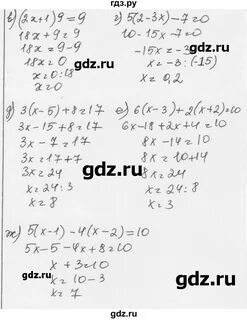 гдз.ру
в) (2x+1)9=9
18x+9=9
18x=9-9
18x=0
x=0:18
x=0
г) 5(2-3x)-7=0
10-15x-7=0
-15x=-3
x=-3:(-15)
x=0,2
д) 3(x-5)+8=17
3x-15+8=17
3x-7=17
3x=17+7
3x=24
x=24:3
x=8
е) 6(x-3)+2(x+2)=10
6x-18+2x+4=10
8x-14=10
8x=10+14
8x=24
x=24:8
x=3
ж) 5(x-1)-4(x-2)=10
5x-5-4x+8=10
x+3=10
x=10-3
x=7